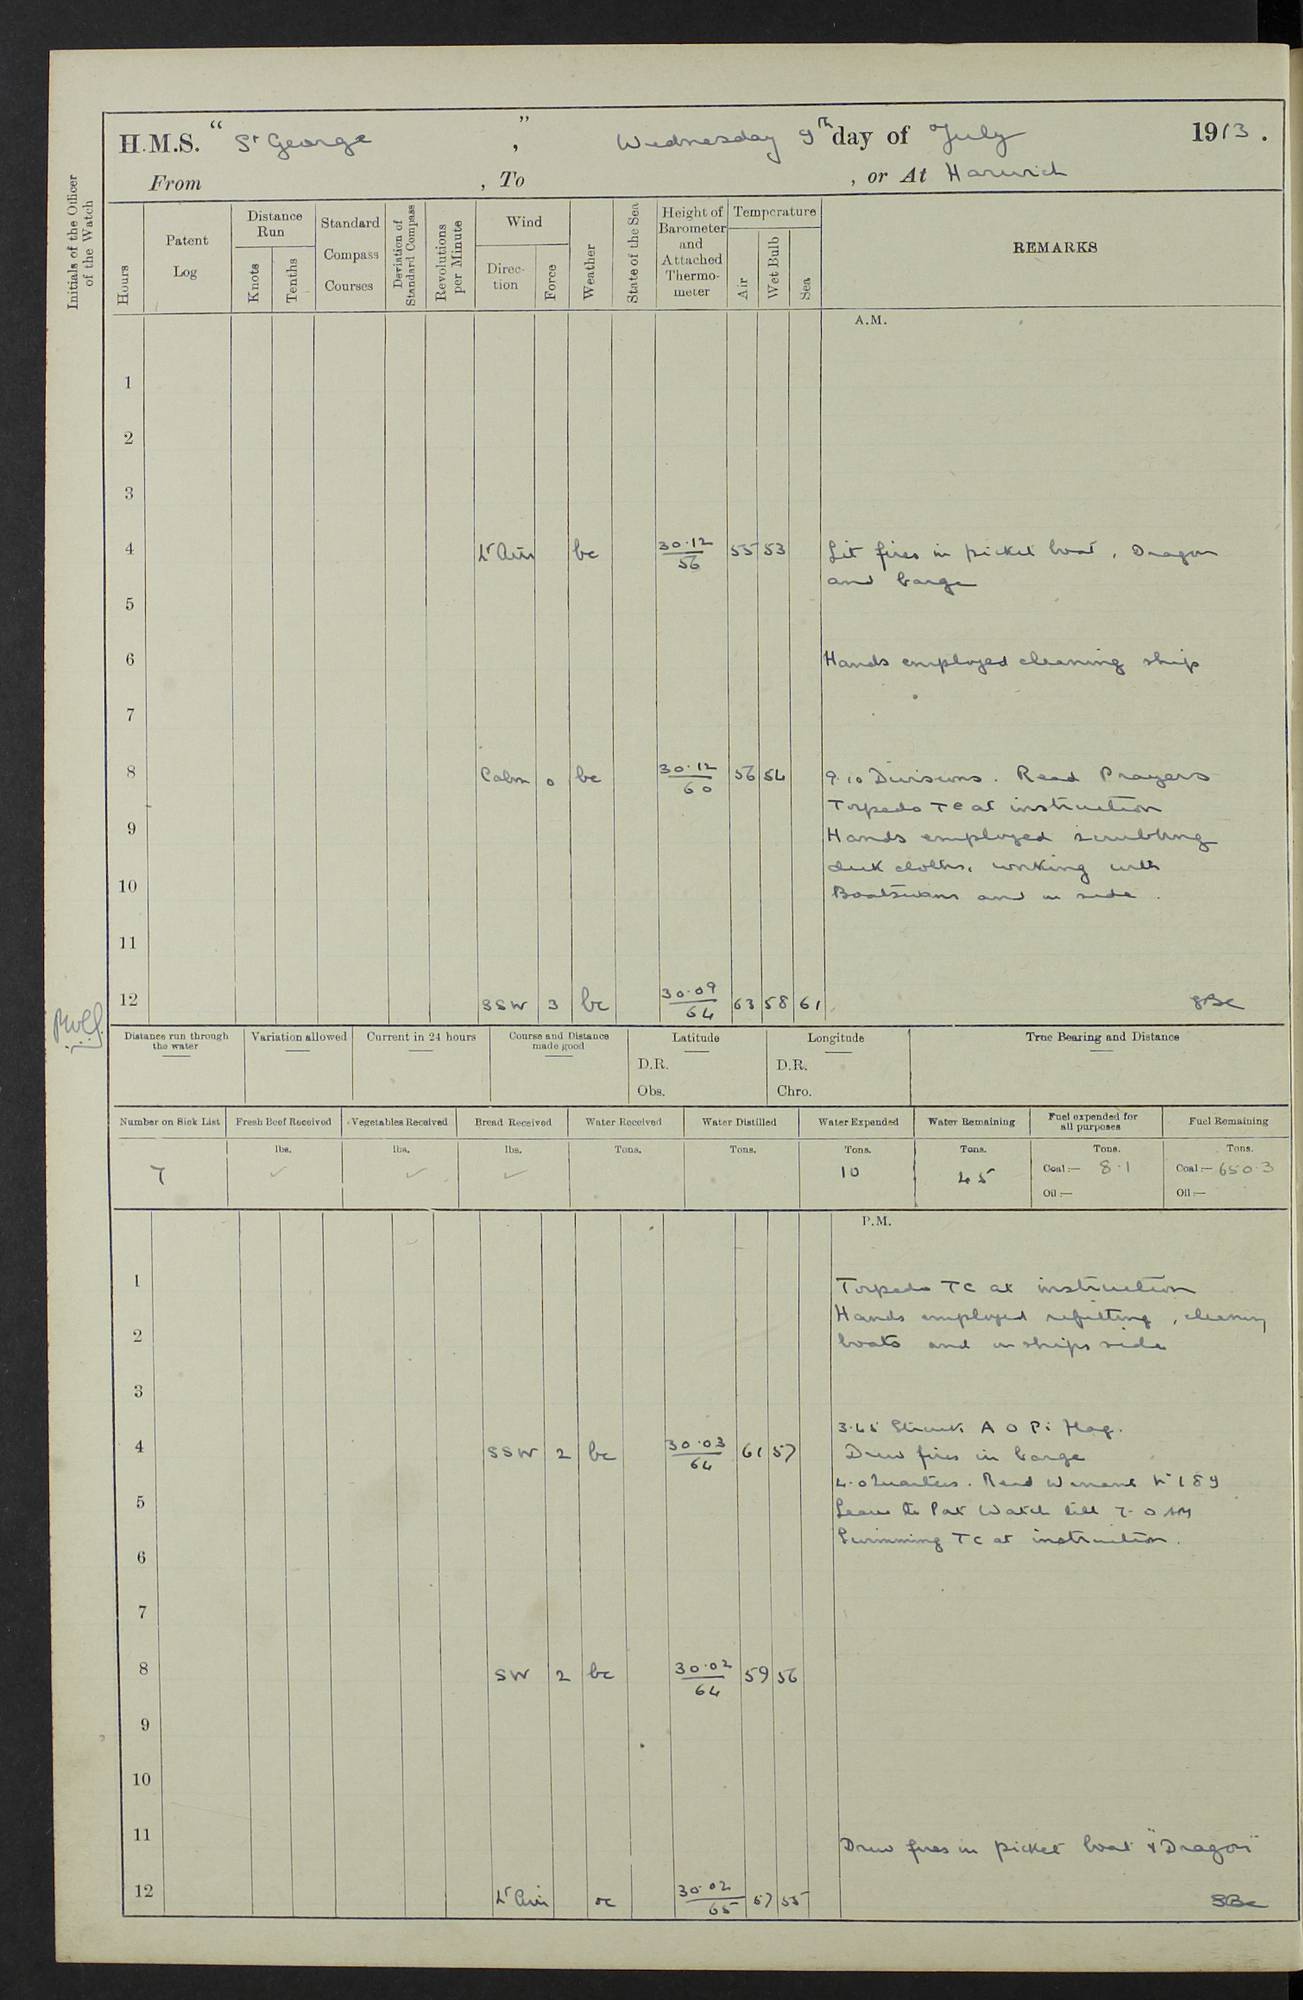 H.M.S. “ St George ” , Wednesday 9th day of July 1913 .
From , To , or At Harwich
Initials of the Officer of the Watch
Hours
Patent Log
Distance Run
Knots
Tenths
Standard Compass Courses
Deviation of Standard Compass
Revolutions per Minute
Wind
Direc-tion
Force
Weather
State of the Sea
Height of Barometer and Attached Thermo-meter
Temperature
Air
Wet Bulb
Sea
REMARKS
A.M.
1
2
3
4 Lt Airs bc 30.12 56 55 53 Lit fires in picket boat, Dragon
and barge
5
6 Hands employed cleaning ship
7
8 Calm 0 bc 30.12 60 56 54 9.10 Divisions. Read Prayers
Torpedo TC at instruction
9 Hands employed scrubbing
deck cloths, working with
10 Boatswains and on side.
11
12 SSW 3 bc 30.09 64 63 58 61
Distance run through the water
Variation allowed
Current in 24 hours
Course and Distance made good
Latitude
D.R.
Obs.
Longitude
D.R.
Chro.
True Bearing and Distance
Number on Sick List
Fresh Beef Received
Vegetables Received
Bread Received
Water Received
Water Distilled
Water Expended
Water Remaining
Fuel expended for all purposes
Fuel Remaining
lbs. lbs. lbs. Tons. Tons. Tons. Tons. Tons. Tons.
7 ✓ ✓ ✓ 10 45 Coal:— 8.1 Coal:— 650.3
Oil:— Oil:—
P.M.
1 Torpedo TC at instruction
Hands employed refitting, cleaning
2 boats and on ships side
3
3.45 Struck A O P: Flag.
4 SSW 2 bc 30.03 64 61 57 Drew fires in barge
4.0 Quarters. Read Warrant No 189
5 Leave to Part Watch till 7.0 AM
Swimming TC at instruction.
6
7
8 SW 2 bc 30.02 64 59 56
9
10
11 Drew fires in picket boat & "Dragon"
12 Lt Airs oc 30.02 65 57 55